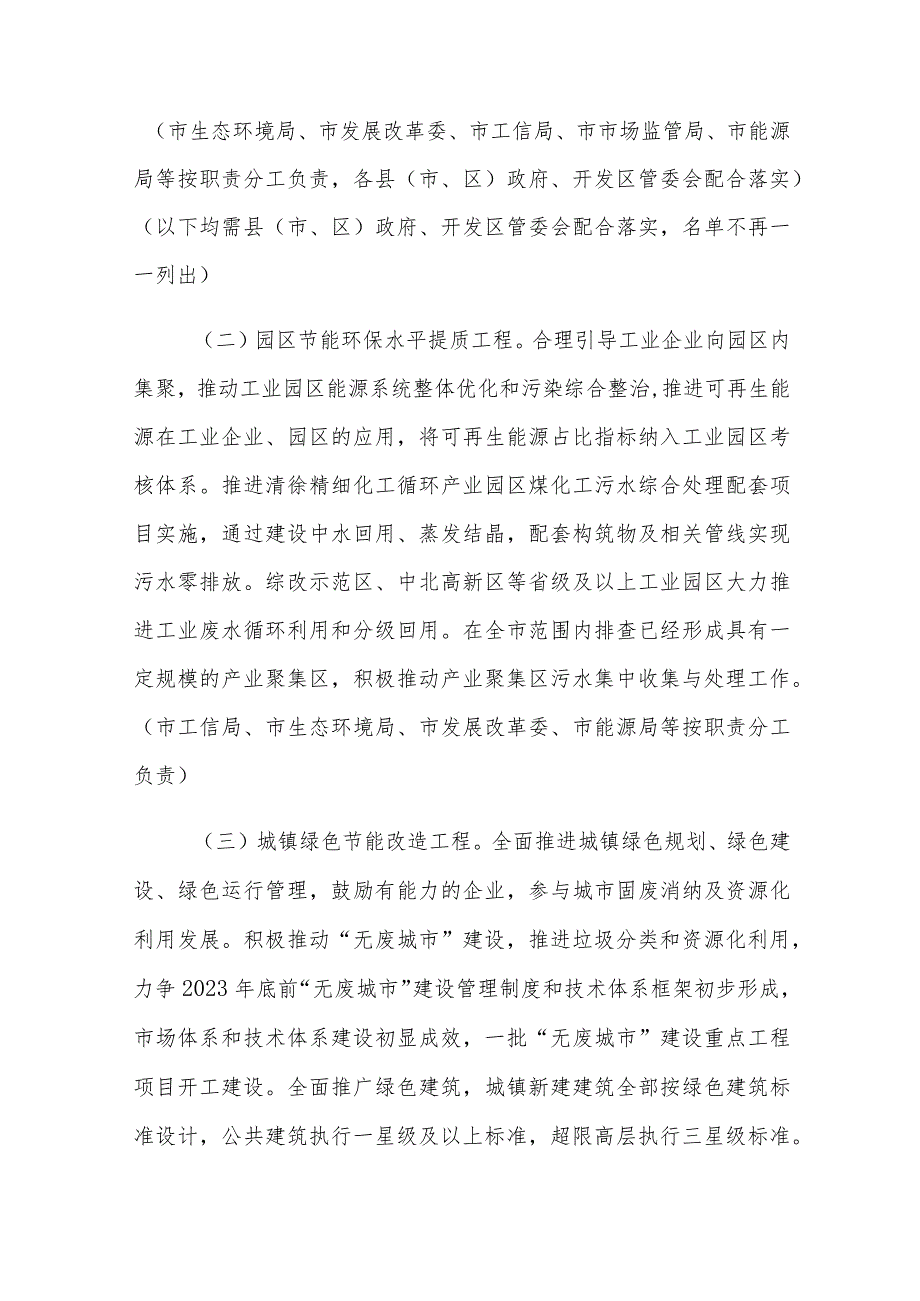 （市生态环境局、市发展改革委、市工信局、市市场监管局、市能源
局等按职责分工负责，各县（市、区）政府、开发区管委会配合落实）
（以下均需县（市、区）政府、开发区管委会配合落实，名单不再一
一列出）
（二）园区节能环保水平提质工程。合理引导工业企业向园区内
集聚，推动工业园区能源系统整体优化和污染综合整治,推进可再生能
源在工业企业、园区的应用，将可再生能源占比指标纳入工业园区考
核体系。推进清徐精细化工循环产业园区煤化工污水综合处理配套项
目实施，通过建设中水回用、蒸发结晶，配套构筑物及相关管线实现
污水零排放。综改示范区、中北高新区等省级及以上工业园区大力推
进工业废水循环利用和分级回用。在全市范围内排查已经形成具有一
定规模的产业聚集区，积极推动产业聚集区污水集中收集与处理工作。
（市工信局、市生态环境局、市发展改革委、市能源局等按职责分工
负责）
（三）城镇绿色节能改造工程。全面推进城镇绿色规划、绿色建
设、绿色运行管理，鼓励有能力的企业，参与城市固废消纳及资源化
利用发展。积极推动“无废城市”建设，推进垃圾分类和资源化利用，
力争 2023 年底前“无废城市”建设管理制度和技术体系框架初步形成，
市场体系和技术体系建设初显成效，一批“无废城市”建设重点工程
项目开工建设。全面推广绿色建筑，城镇新建建筑全部按绿色建筑标
准设计，公共建筑执行一星级及以上标准，超限高层执行三星级标准。